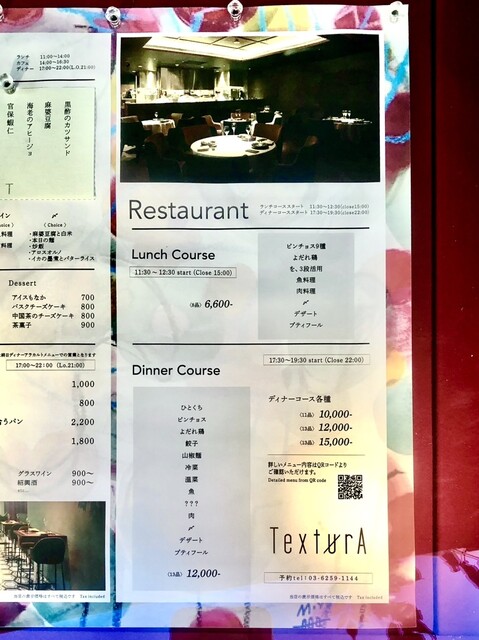 ランチ 11:00〜14:00
カフェ 14:00〜16:30
ディナー 17:00〜22:00(L.O.21:00)
黒酢のカツサンド
麻婆豆腐
海老のアヒージョ
官保蝦仁
T
イン
〆
hoice)
(Choice)
料理
・麻婆豆腐と白米
料理
・本日の麺
・炒飯
・アロスオルノ
・イカの墨煮とバターライス
Dessert
アイスもなか 700
バスクチーズケーキ 800
中国茶のチーズケーキ 800
茶菓子 900
ディナーアラカルトメニューでの営業となります
17:00〜22:00 (Lo.21:00)
1,000
800
うパン 2,200
1,800
グラスワイン 900〜
紹興酒 900〜
税込です Tax included
Restaurant
ランチコーススタート 11:30〜12:30(close15:00)
ディナーコーススタート 17:30〜19:30(close22:00)
Lunch Course
11:30 〜 12:30 start (Close 15:00)
(8品) 6,600-
ピンチョス9種
よだれ鶏
を、3段活用
魚料理
肉料理
〆
デザート
プティフール
Dinner Course
17:30〜19:30 start (Close 22:00)
ひとくち
ピンチョス
よだれ鶏
餃子
山椒麺
冷菜
温菜
魚
???
肉
〆
デザート
プティフール
(13品) 12,000-
ディナーコース各種
(11品) 10,000-
(13品) 12,000-
(13品) 15,000-
詳しいメニュー内容はQRコードより
ご確認いただけます。
Detailed menu from QR code
TexturA
予約tel:03-6259-1144
税込です Tax included